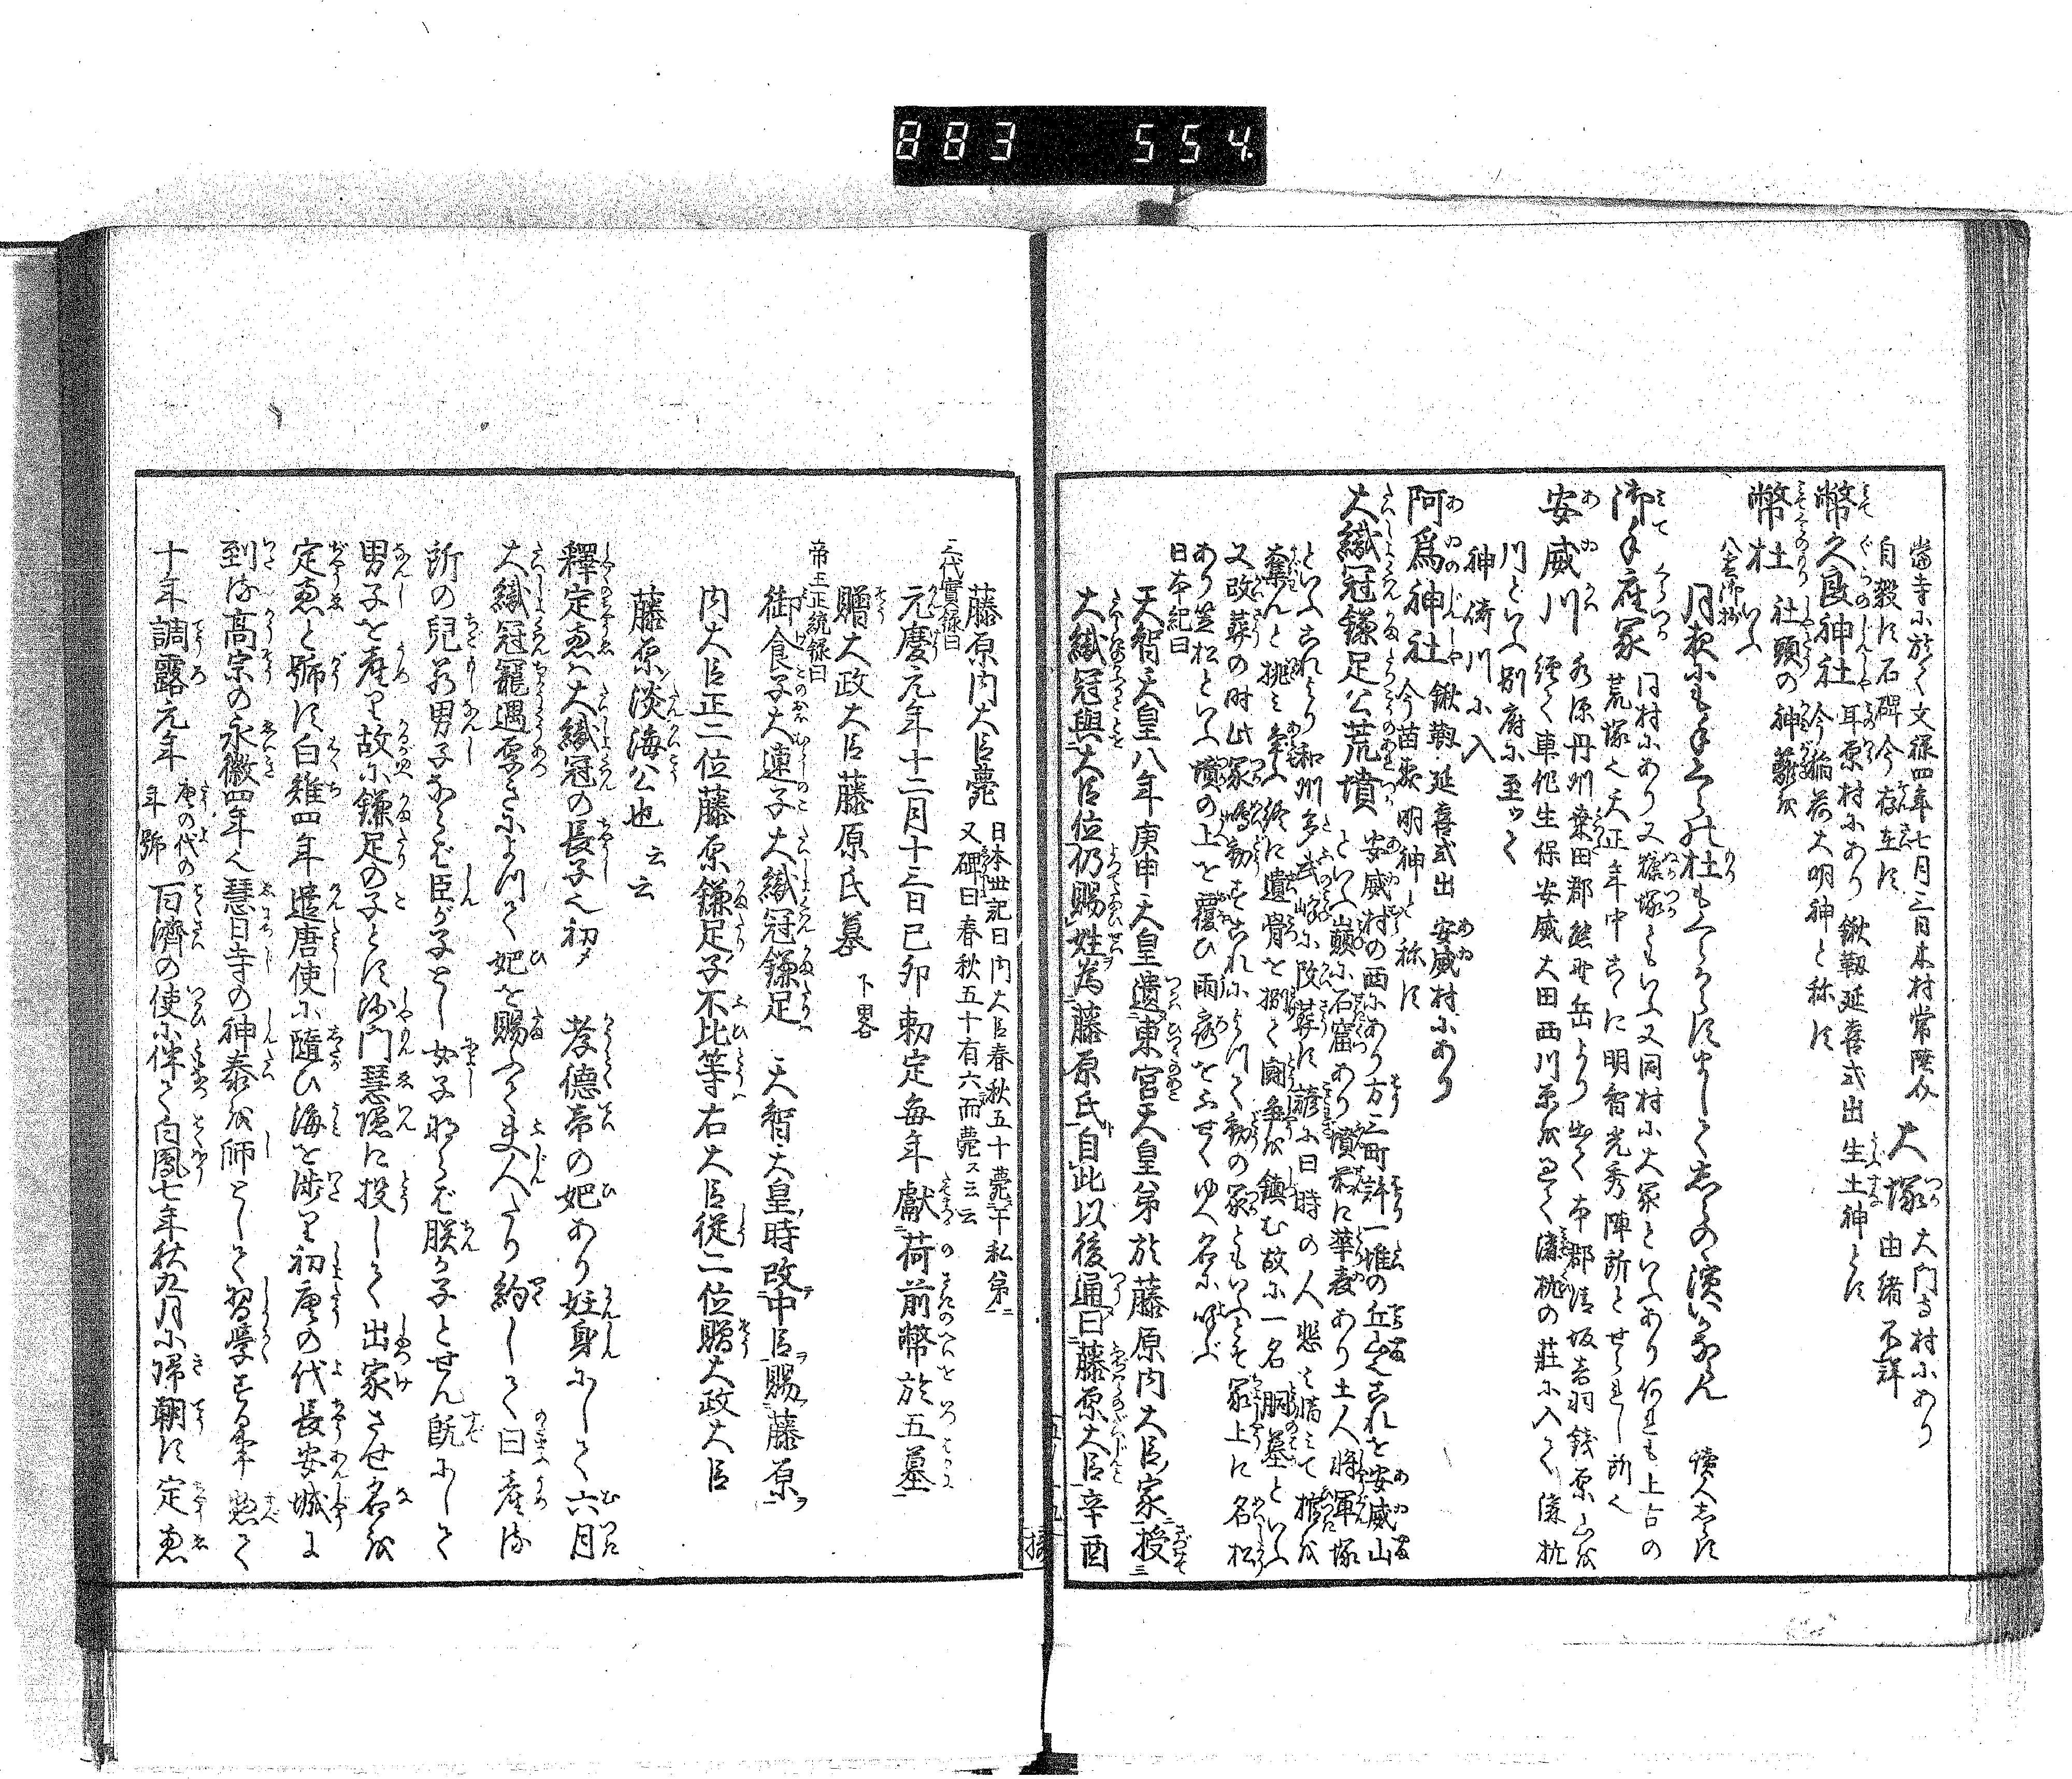 883 554
當寺に於て文禄四年七月三日木村常陸介
自殺す石碑今存在す
大塚 大門寺村にあり
由緒不詳
幣久良神社 耳原村にあり 鍬靱延喜式出 生土神とす
今稲荷大明神と称す
幣杜 社頭の神籬を
いふ
八雲御抄
月夜にも
讀人しらす
御手座冢 同村にあり又糠塚ともいふ又同村に大冢といふあり何れも上古の
荒塚也天正年中こゝに明智光秀陣所とせられし所也
安威川 水源丹州桒田郡熊野岳より出て本郡清坂音羽銭原山を
經て車作生保安威大田西川原を過て溝杭の莊に入て溝杭
川といふ別府に至つて
神﨑川に入
阿爲神社 鍬靱延喜式出 安威村にあり
今苗森明神と称す
大織冠鎌足公荒墳 安威村の西にあり方二町許一堆の丘山也これを安威山
といふ巓に石窟あり墳前に華表あり土人將軍塚
といふこれより和州多武峰に改葬す諺に曰時の人悲み惜みて棺を
奪んと挑み爭ふ終に遺骨を捌て鬪爭を鎮む故に一名胴墓といふ
又改葬の时此冢鳴動すこれによつて動の冢ともいふとぞ冢上に名松
あり笠松といふ墳の上を覆ひ雨露をふせぐゆへ名に呼ぶ
日本紀曰
天智天皇八年庚申天皇遣東宮天皇㐧於藤原内大臣家授
大織冠與大臣位仍賜姓為藤原氏自此以後通曰藤原大臣辛酉
藤原内大臣薨 日本世記曰内大臣春秋五十薨于私第
又碑曰春秋五十有六而薨ス云云
三代實録曰
元慶元年十二月十三日己卯勅定毎年獻荷前幣於五墓
贈大政大臣藤原氏墓 下畧
帝王正統録曰
御食子大連子大織冠鎌足 天智天皇時改中臣賜藤原
内大臣正二位藤原鎌足子不比等右大臣従二位贈大政大臣
藤原淡海公也 云云
釋定恵ハ大織冠の長子也初メ 孝德帝の妃あり妊身にして六月
大織冠寵遇厚きによつて妃を賜ふて夫人たり約して曰産る
所の兒若男子ならば臣が子とし女子ならば朕が子とせん既にして
男子を産り故に鎌足の子とす沙門慧隠に投して出家させ名を
定恵と號す白雉四年遣唐使に隨ひ海を渉り初唐の代長安城に
到る高宗の永徽四年也慧日寺の神泰を師として習學する事惣て
十年調露元年 唐の代の
年號 百済の使に伴て白鳳七年秋九月に帰朝す定恵